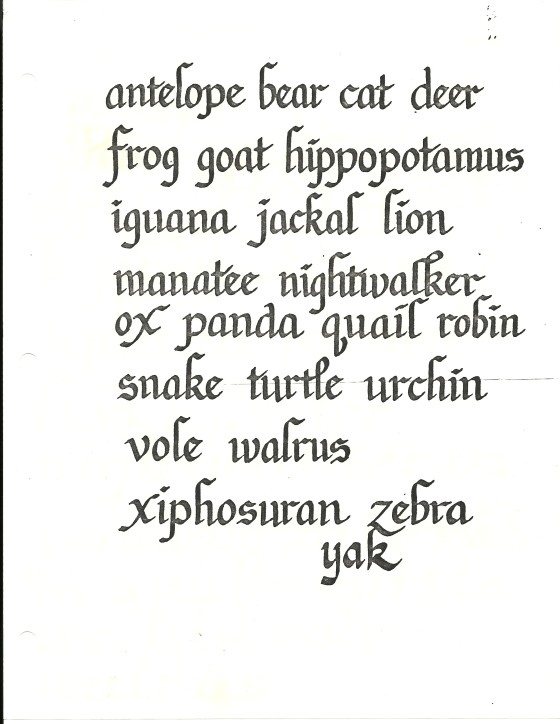 antelope bear cat deer
frog goat hippopotamus
iguana jackal lion
manatee nightwalker
ox panda quail robin
snake turtle urchin
vole walrus
xiphosuran zebra
yak